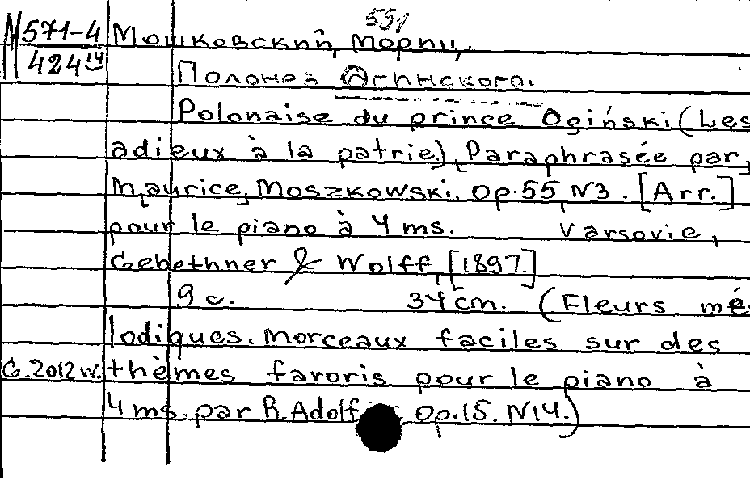 551
М 571-4 Мошковский, Мориц,
424
Полонез Огинского.
Polonaise du prince Ogiński (Les
adieux à la patrie), Paraphrasée par
Maurice Moszkowski. Op. 55, N3. [Arr.]
pour le piano à 4 ms. Varsovie,
Gebethner & Wolff, [1897]
9 с. 34 cm. (Fleurs mé-
lodiques. Morceaux faciles sur des
thèmes favoris pour le piano à
G. 2012 W.
4 ms. par R. Adolf Op. 15. N14.)